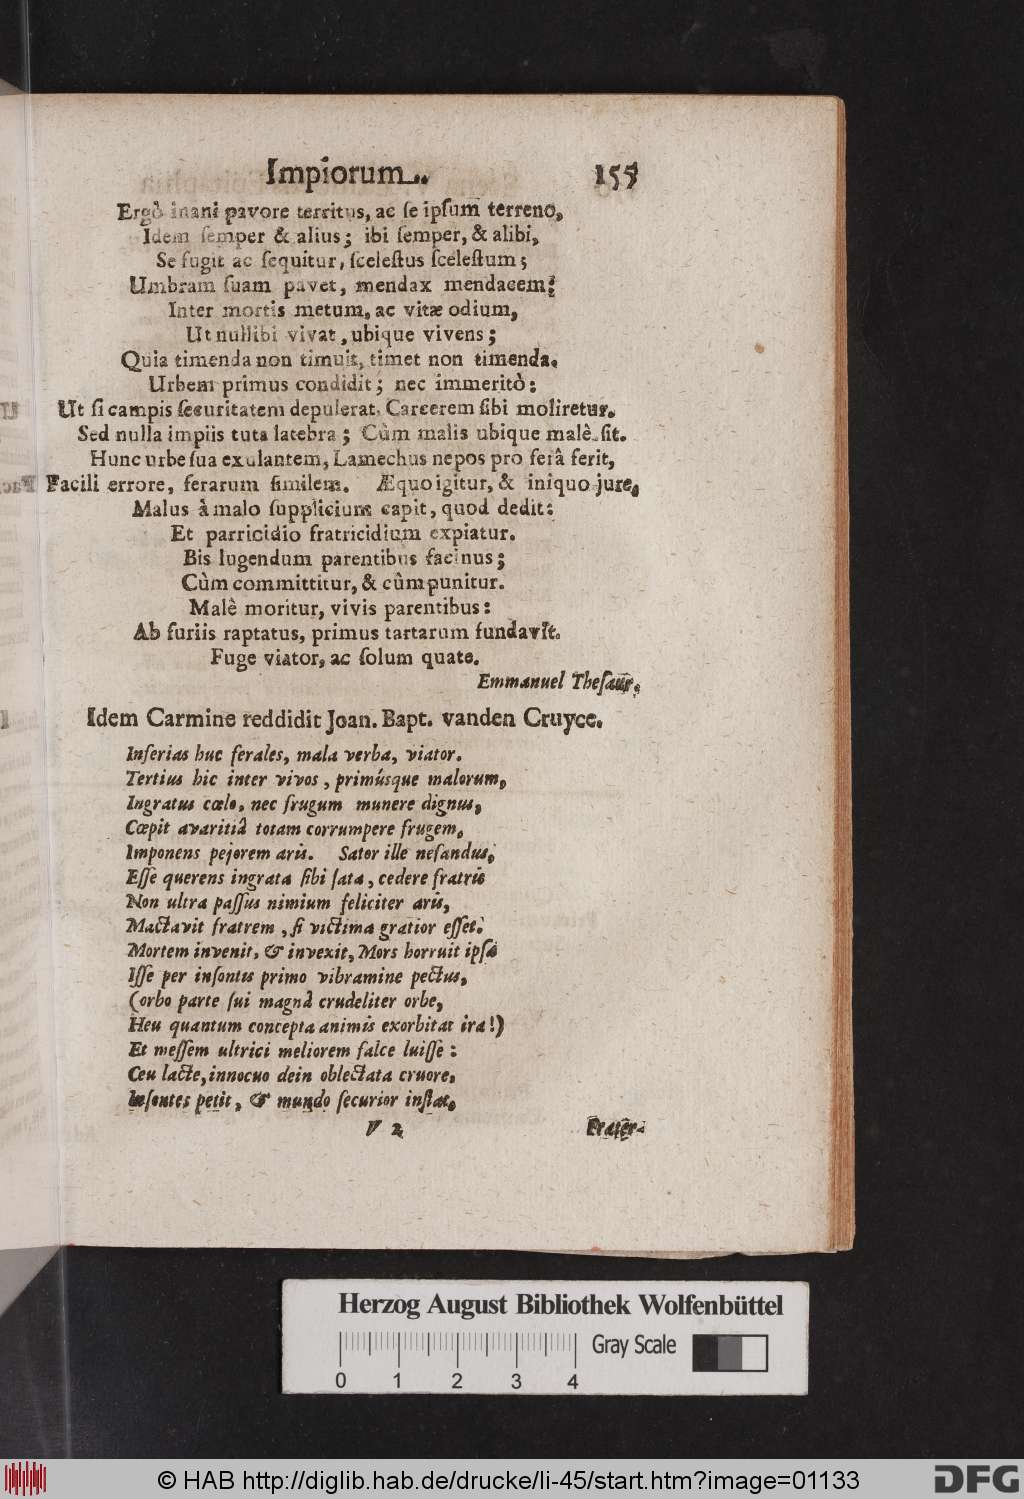 Impiorum. 155
Ergò inani pavore territus, ac se ipsum terreno,
Idem semper & alius; ibi semper, & alibi,
Se fugit ac sequitur, scelestus scelestum;
Umbram suam pavet, mendax mendacem:
Inter mortis metum, ac vitæ odium,
Ut nullibi vivat, ubique vivens;
Quia timenda non timuit, timet non timenda.
Urbem primus condidit; nec immeritò:
Ut si campis securitatem depulerat, Carcerem sibi moliretur.
Sed nulla impiis tuta latebra; Cùm malis ubique malè sit.
Hunc urbe sua exulantem, Lamechus nepos pro ferâ ferit,
Facili errore, ferarum similem. Æquo igitur, & iniquo jure,
Malus à malo supplicium capit, quod dedit:
Et parricidio fratricidium expiatur.
Bis lugendum parentibus facinus;
Cùm committitur, & cùm punitur.
Malè moritur, vivis parentibus:
Ab furiis raptatus, primus tartarum fundavit.
Fuge viator, ac solum quate.
Emmanuel Thesaur.
Idem Carmine reddidit Joan. Bapt. vanden Cruyce.
Inferias huc ferales, mala verba, viator.
Tertius hic inter vivos, primúsque malorum,
Ingratus cœlo, nec frugum munere dignus,
Cœpit avaritiâ totam corrumpere frugem,
Imponens pejorem aris. Sator ille nefandus,
Esse querens ingrata sibi sata, cedere fratris
Non ultra passus nimium feliciter aris,
Mactavit fratrem, si victima gratior esset.
Mortem invenit, & invexit, Mors horruit ipsa
Isse per insontis primo vibramine pectus,
(orbo parte sui magnâ crudeliter orbe,
Heu quantum concepta animis exorbitat ira!)
Et messem ultrici meliorem falce luisse:
Ceu lacte, innocuo dein oblectata cruore,
Insontes petit, & mundo securior instat,
V 2 Frater
Herzog August Bibliothek Wolfenbüttel
Gray Scale
0 1 2 3 4
© HAB http://diglib.hab.de/drucke/li-45/start.htm?image=01133
DFG